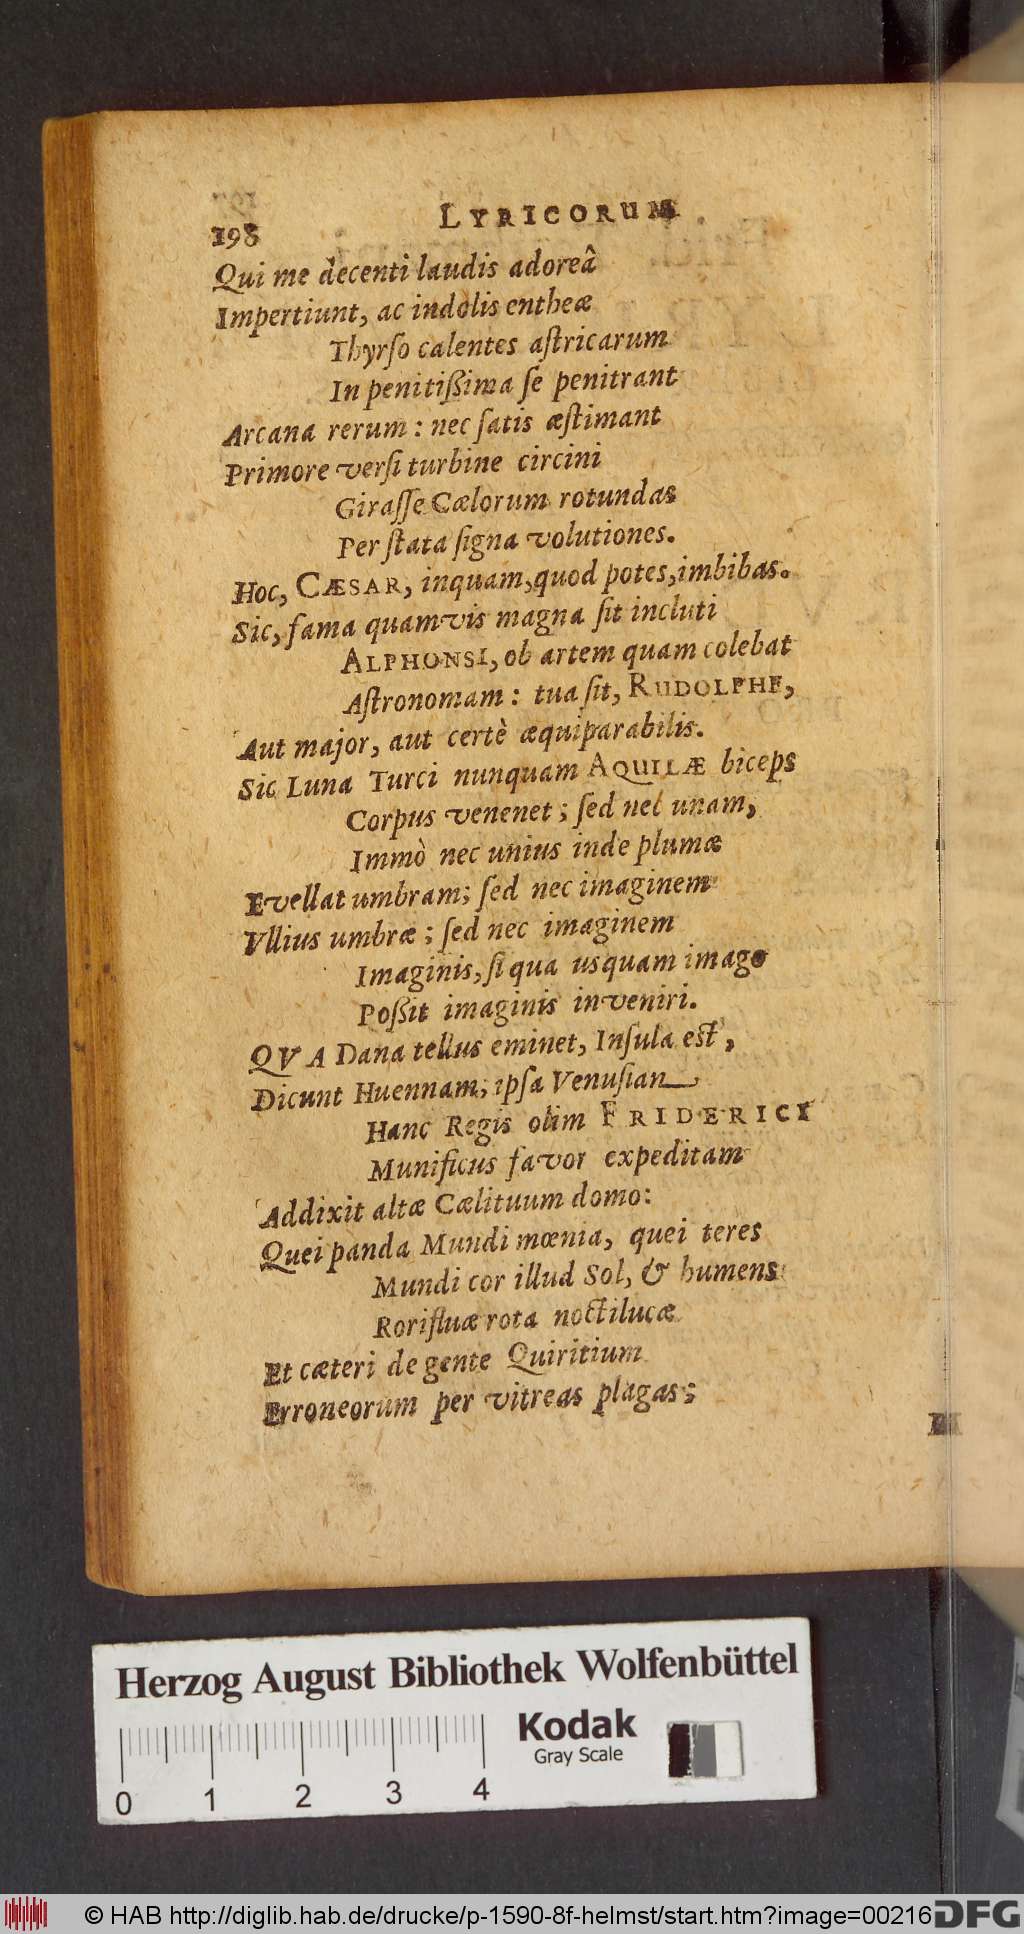 198
LYRICORUM
Qui me decenti laudis adoreâ
Impertiunt, ac indolis entheæ
Thyrſo calentes aſtricarum
In penitißima ſe penitrant
Arcana rerum : nec ſatis æſtimant
Primore verſi turbine circini
Giraſſe Cælorum rotundas
Per ſtata ſigna volutiones.
Hoc, CÆSAR, inquam, quod potes, imbibas.
Sic, fama quamvis magna ſit incluti
ALPHONSI, ob artem quam colebat
Aſtronomam : tua ſit, RUDOLPHE,
Aut major, aut certè æquiparabilis.
Sic Luna Turci nunquam AQUILÆ biceps
Corpus venenet ; ſed nec unam,
Immò nec unius inde plumæ
Evellat umbram ; ſed nec imaginem
Vllius umbræ ; ſed nec imaginem
Imaginis, ſi qua usquam imago
Poßit imaginis inveniri.
QVA Dana tellus eminet, Inſula eſt,
Dicunt Huennam, ipſa Venuſian
Hanc Regis olim FRIDERICI
Munificus favor expeditam
Addixit altæ Cælituum domo :
Quei panda Mundi mœnia, quei teres
Mundi cor illud Sol, & humens
Rorifluæ rota noctilucæ
Et cæteri de gente Quiritium
Erroneorum per vitreas plagas ;
Herzog August Bibliothek Wolfenbüttel
Kodak
Gray Scale
0 1 2 3 4
© HAB http://diglib.hab.de/drucke/p-1590-8f-helmst/start.htm?image=00216
DFG